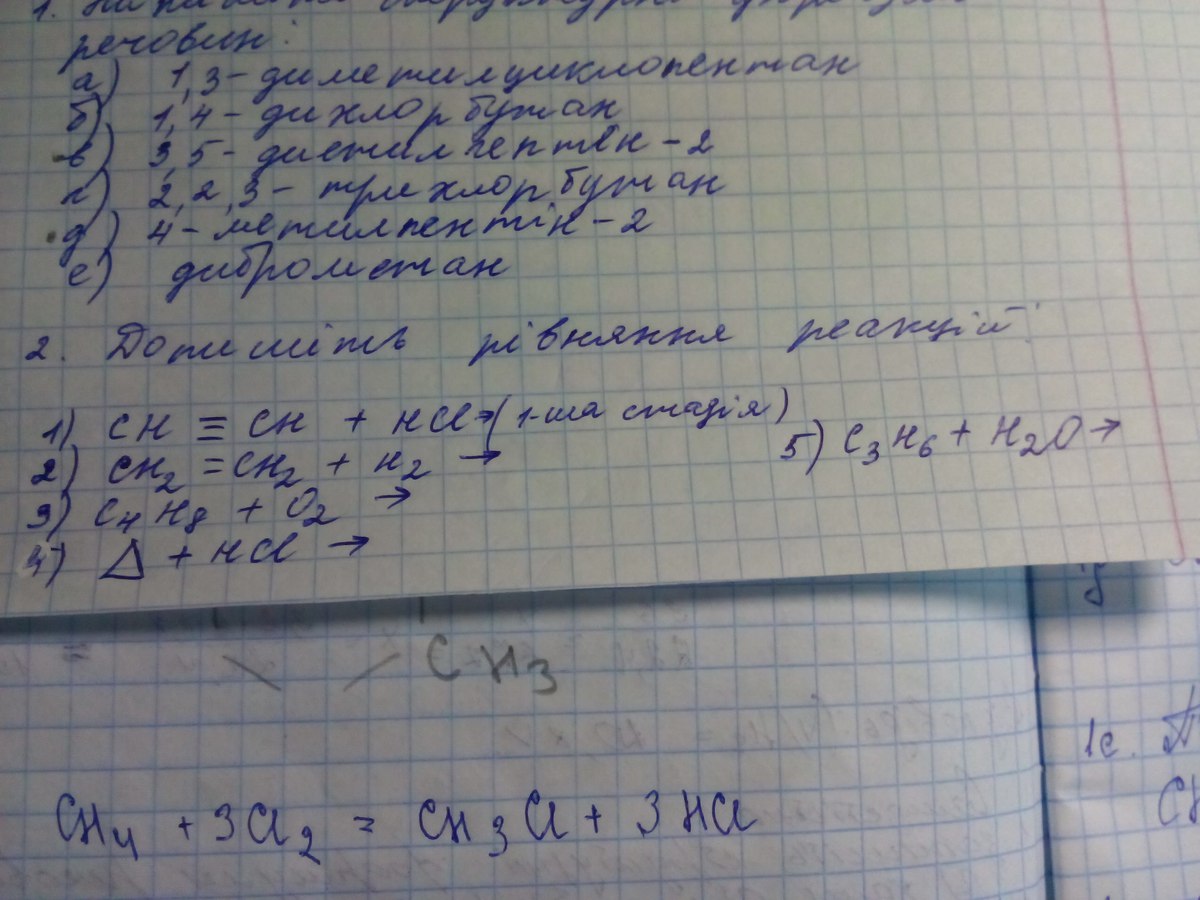 речовин:
а) 1,3-диметилциклопентан
б) 1,4-дихлорбутан
в) 3,5-диетилгептен-2
г) 2,2,3-трихлорбутан
д) 4-метилпентін-2
е) диброметан
2. Допишіть рівняння реакцій:
1) CH ≡ CH + HCl → (1-ша стадія)
2) CH₂ = CH₂ + H₂ →
3) C₄H₈ + O₂ →
4) △ + HCl →
5) C₃H₆ + H₂O →
CH₃
1с.
CH₄ + 3Cl₂ = CH₃Cl + 3HCl